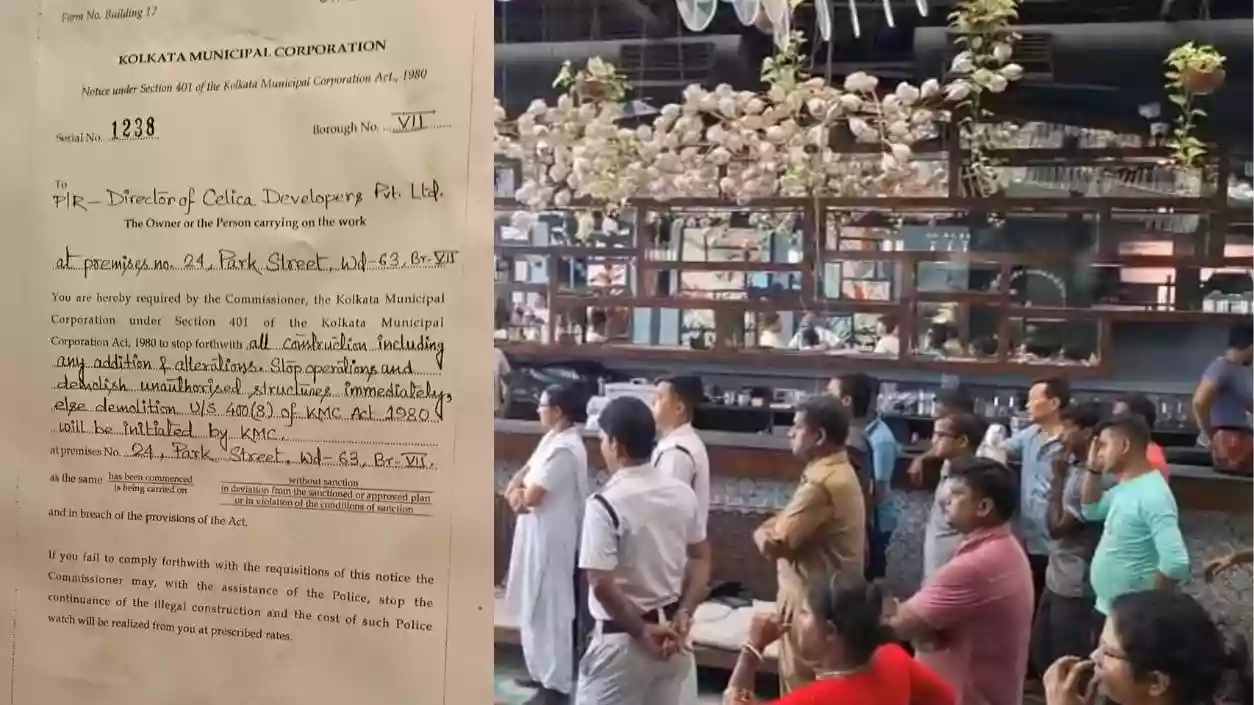 Form No. Building 17
KOLKATA MUNICIPAL CORPORATION
Notice under Section 401 of the Kolkata Municipal Corporation Act., 1980
Serial No. 1238
Borough No. VII
To
P/R - Director of Celica Developers Pvt. Ltd.
The Owner or the Person carrying on the work
at premises no. 24, Park Street, Wd-63, Br-VII
You are hereby required by the Commissioner, the Kolkata Municipal
Corporation under Section 401 of the Kolkata Municipal
Corporation Act, 1980 to stop forthwith all construction including
any addition & alterations. Stop operations and
demolish unauthorised structures immediately,
else demolition U/S 400(8) of KMC Act 1980
will be initiated by KMC.
at premises No. 24, Park Street, Wd-63, Br-VII.
as the same has been commenced
is being carried on
without sanction
in deviation from the sanctioned or approved plan
or in violation of the conditions of sanction
and in breach of the provisions of the Act.
If you fail to comply forthwith with the requisitions of this notice the
Commissioner may, with the assistance of the Police, stop the
continuance of the illegal construction and the cost of such Police
watch will be realized from you at prescribed rates.